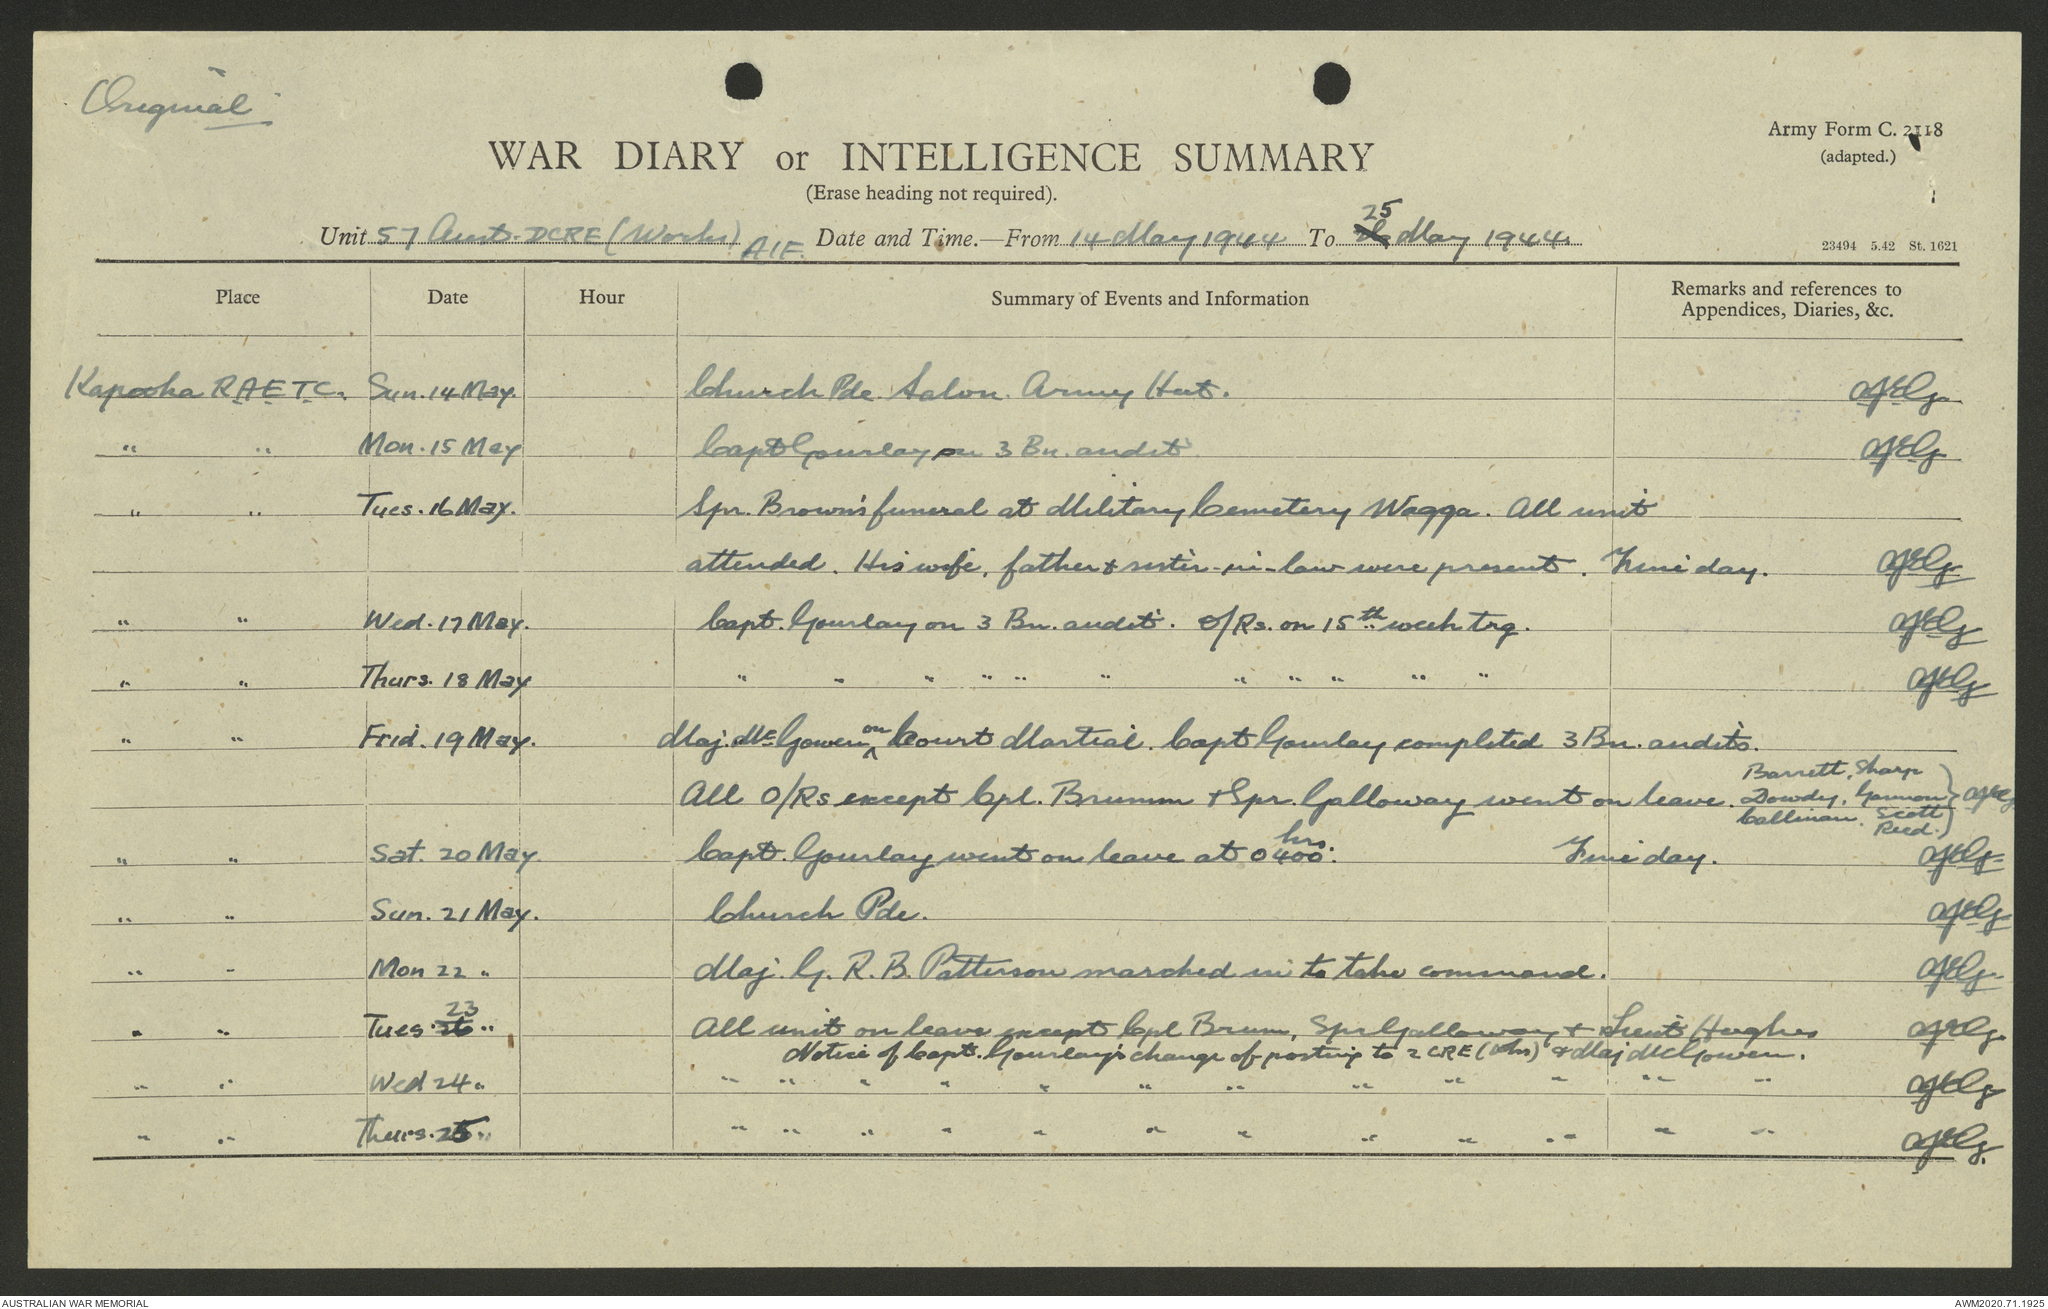 Original
Army Form C. 2118
(adapted.)
WAR DIARY or INTELLIGENCE SUMMARY
(Erase heading not required).
Unit 57 Aust. DCRE (Works) AIF. Date and Time.—From 14 May 1944 To 25 May 1944.
23494 5.42 St. 1621
Place Date Hour Summary of Events and Information Remarks and references to Appendices, Diaries, &c.
Kapooka RAETC. Sun. 14 May. Church Pde. Salvn. Army Hut. AJEG.
" " Mon. 15 May Capt Gourlay on 3 Bn. audit AJEG.
" " Tues. 16 May. Spr. Brown's funeral at Military Cemetery Wagga. All unit
attended. His wife, father & sister-in-law were present. Fine day. AJEG.
" " Wed. 17 May. Capt. Gourlay on 3 Bn. audit. O/Rs. on 15th week trg. AJEG
" " Thurs. 18 May " " " " " " " " " " " AJEG
" " Frid. 19 May. Maj. McGowen on Court Martial. Capt Gourlay completed 3 Bn. audits.
All O/Rs except Cpl. Brumm & Spr. Galloway went on leave. Barrett, Sharp
Dowdy, Gannon AJEG
Callinan. Scott
Reed.
" " Sat. 20 May Capt. Gourlay went on leave at 0400 hrs. Fine day. AJEG.
" " Sun. 21 May. Church Pde. AJEG.
" " Mon 22 " Maj. G. R. B. Patterson marched in to take command. AJEG.
" " Tues. 23 " All unit on leave except Cpl Brum, Spr Galloway & Lieut Hughes AJEG.
Notice of Capt. Gourlay's change of posting to 2 CRE (Wks) & Maj McGowen.
" " Wed 24 " " " " " " " " " " " " " AJEG.
" " Thurs. 25 " " " " " " " " " " " " " AJEG.
AUSTRALIAN WAR MEMORIAL
AWM2020.71.1925